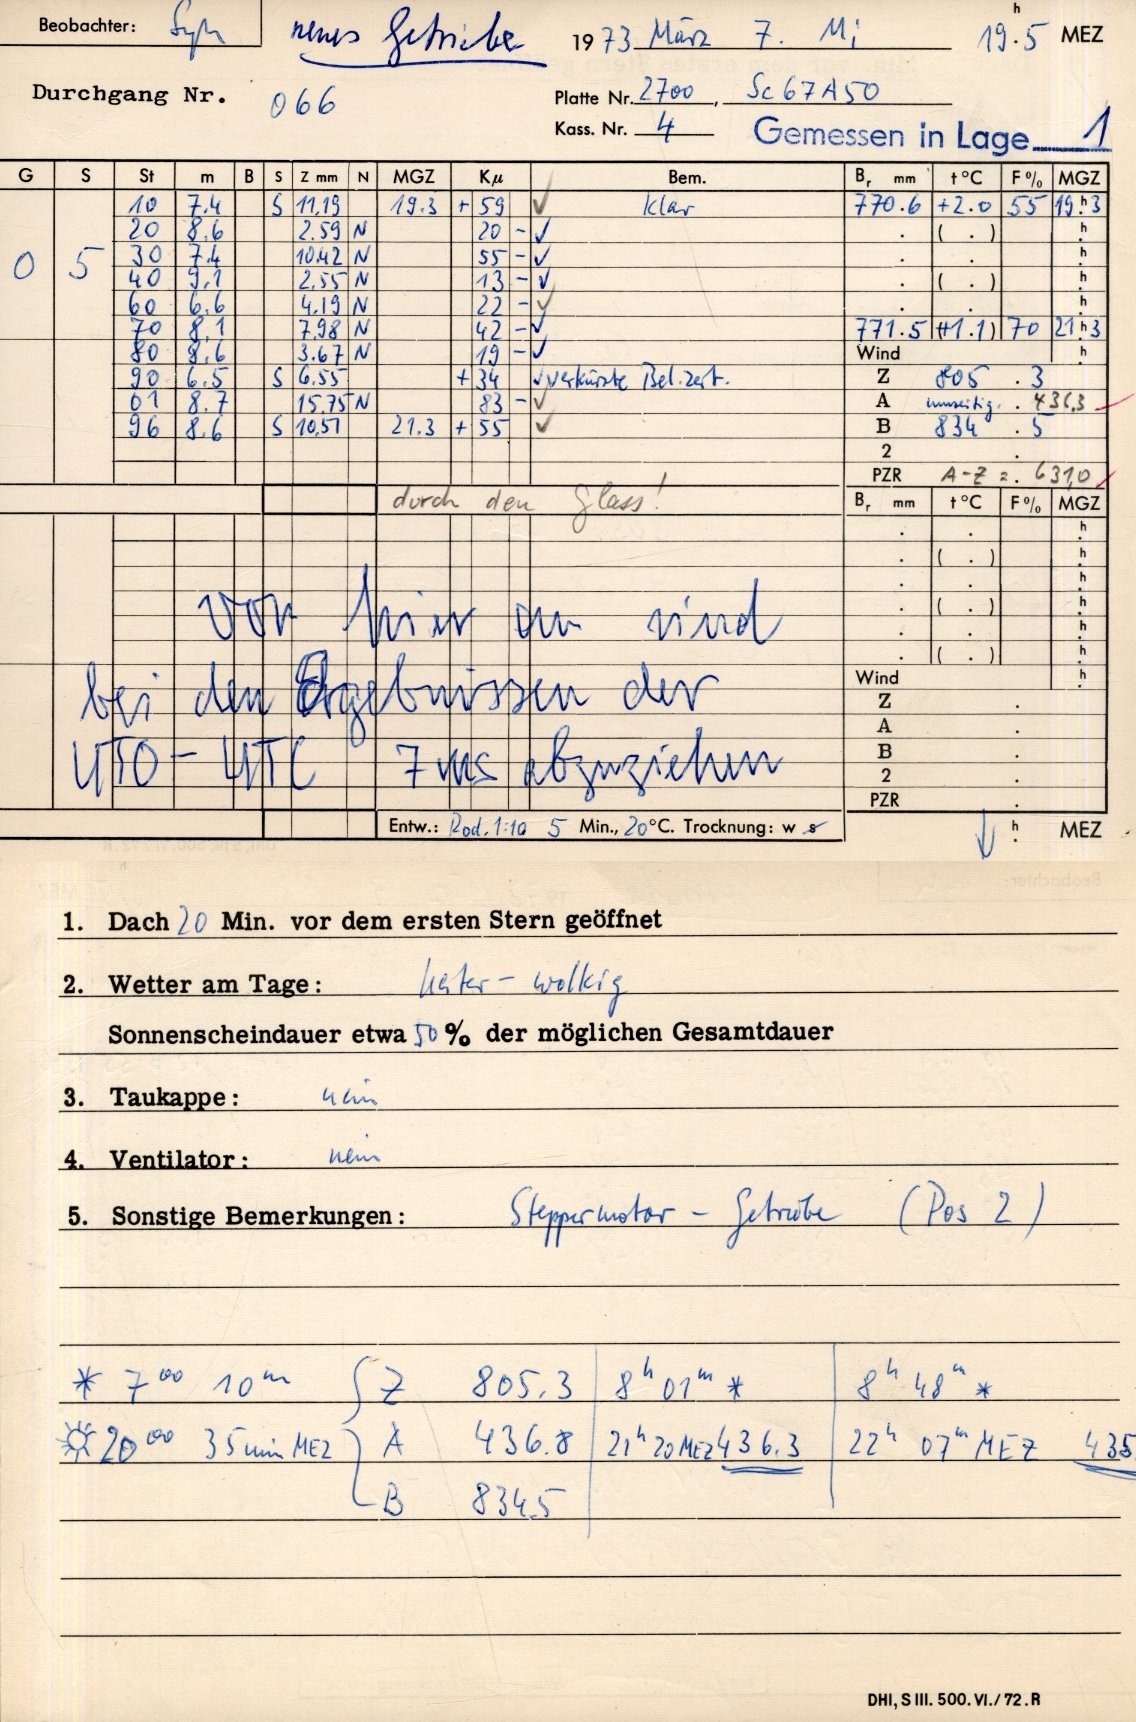 Beobachter:
neues Getriebe
1973 März 7. Mi 19.5 h MEZ
Durchgang Nr. 066
Platte Nr. 2700, Sc67A50
Kass. Nr. 4 Gemessen in Lage 1
G S St m B S Z mm N MGZ Kμ Bem. Br mm t °C F % MGZ
10 7.4 S 11,19 19.3 + 59 ✓ klar 770.6 +2.0 55 19.h3
20 8.6 2.59 N 20 - ✓ . ( . ) h
0 5 30 7.4 10.42 N 55 - ✓ . .
40 9.1 2.55 N 13 - ✓ ( . ) h
60 6.6 4.19 N 22 - ✓ . . h
70 8.1 7.98 N 42 - ✓ 771.5 (+1.1) 70 21.h3
80 8.6 3.67 N 19 - ✓ Wind h
90 6.5 S 6.55 + 34 ✓ verkürzte Bel.zeit. Z 805 . 3
01 8.7 15.75 N 83 - ✓ A umseitig. . 436.3
96 8.6 S 10,51 21.3 + 55 ✓ B 834 . 5
2 .
PZR A-Z = . 631,0
durch den Glass! Br mm t °C F % MGZ
. . h
. ( . ) h
. . h
. ( . ) h
. . h
. ( . ) h
von hier an sind
Wind h
bei den Ergebnissen der
Z .
A .
UTO - UTC 7 ms abzuziehen
B .
2 .
PZR .
Entw.: Rod. 1:10 5 Min., 20 °C. Trocknung: w s ↓ . h MEZ
1. Dach 20 Min. vor dem ersten Stern geöffnet
2. Wetter am Tage: heiter - wolkig
Sonnenscheindauer etwa 50 % der möglichen Gesamtdauer
3. Taukappe: nein
4. Ventilator: nein
5. Sonstige Bemerkungen: Steppermotor - Getriebe (Pos 2)
* 7 00 10 m Z 805.3 8 h 01 m * 8 h 48 m *
20 00 35 min MEZ A 436.8 21 h 20 MEZ 436.3 22 h 07 m MEZ 435
B 834.5
DHI, S III. 500. VI./72. R